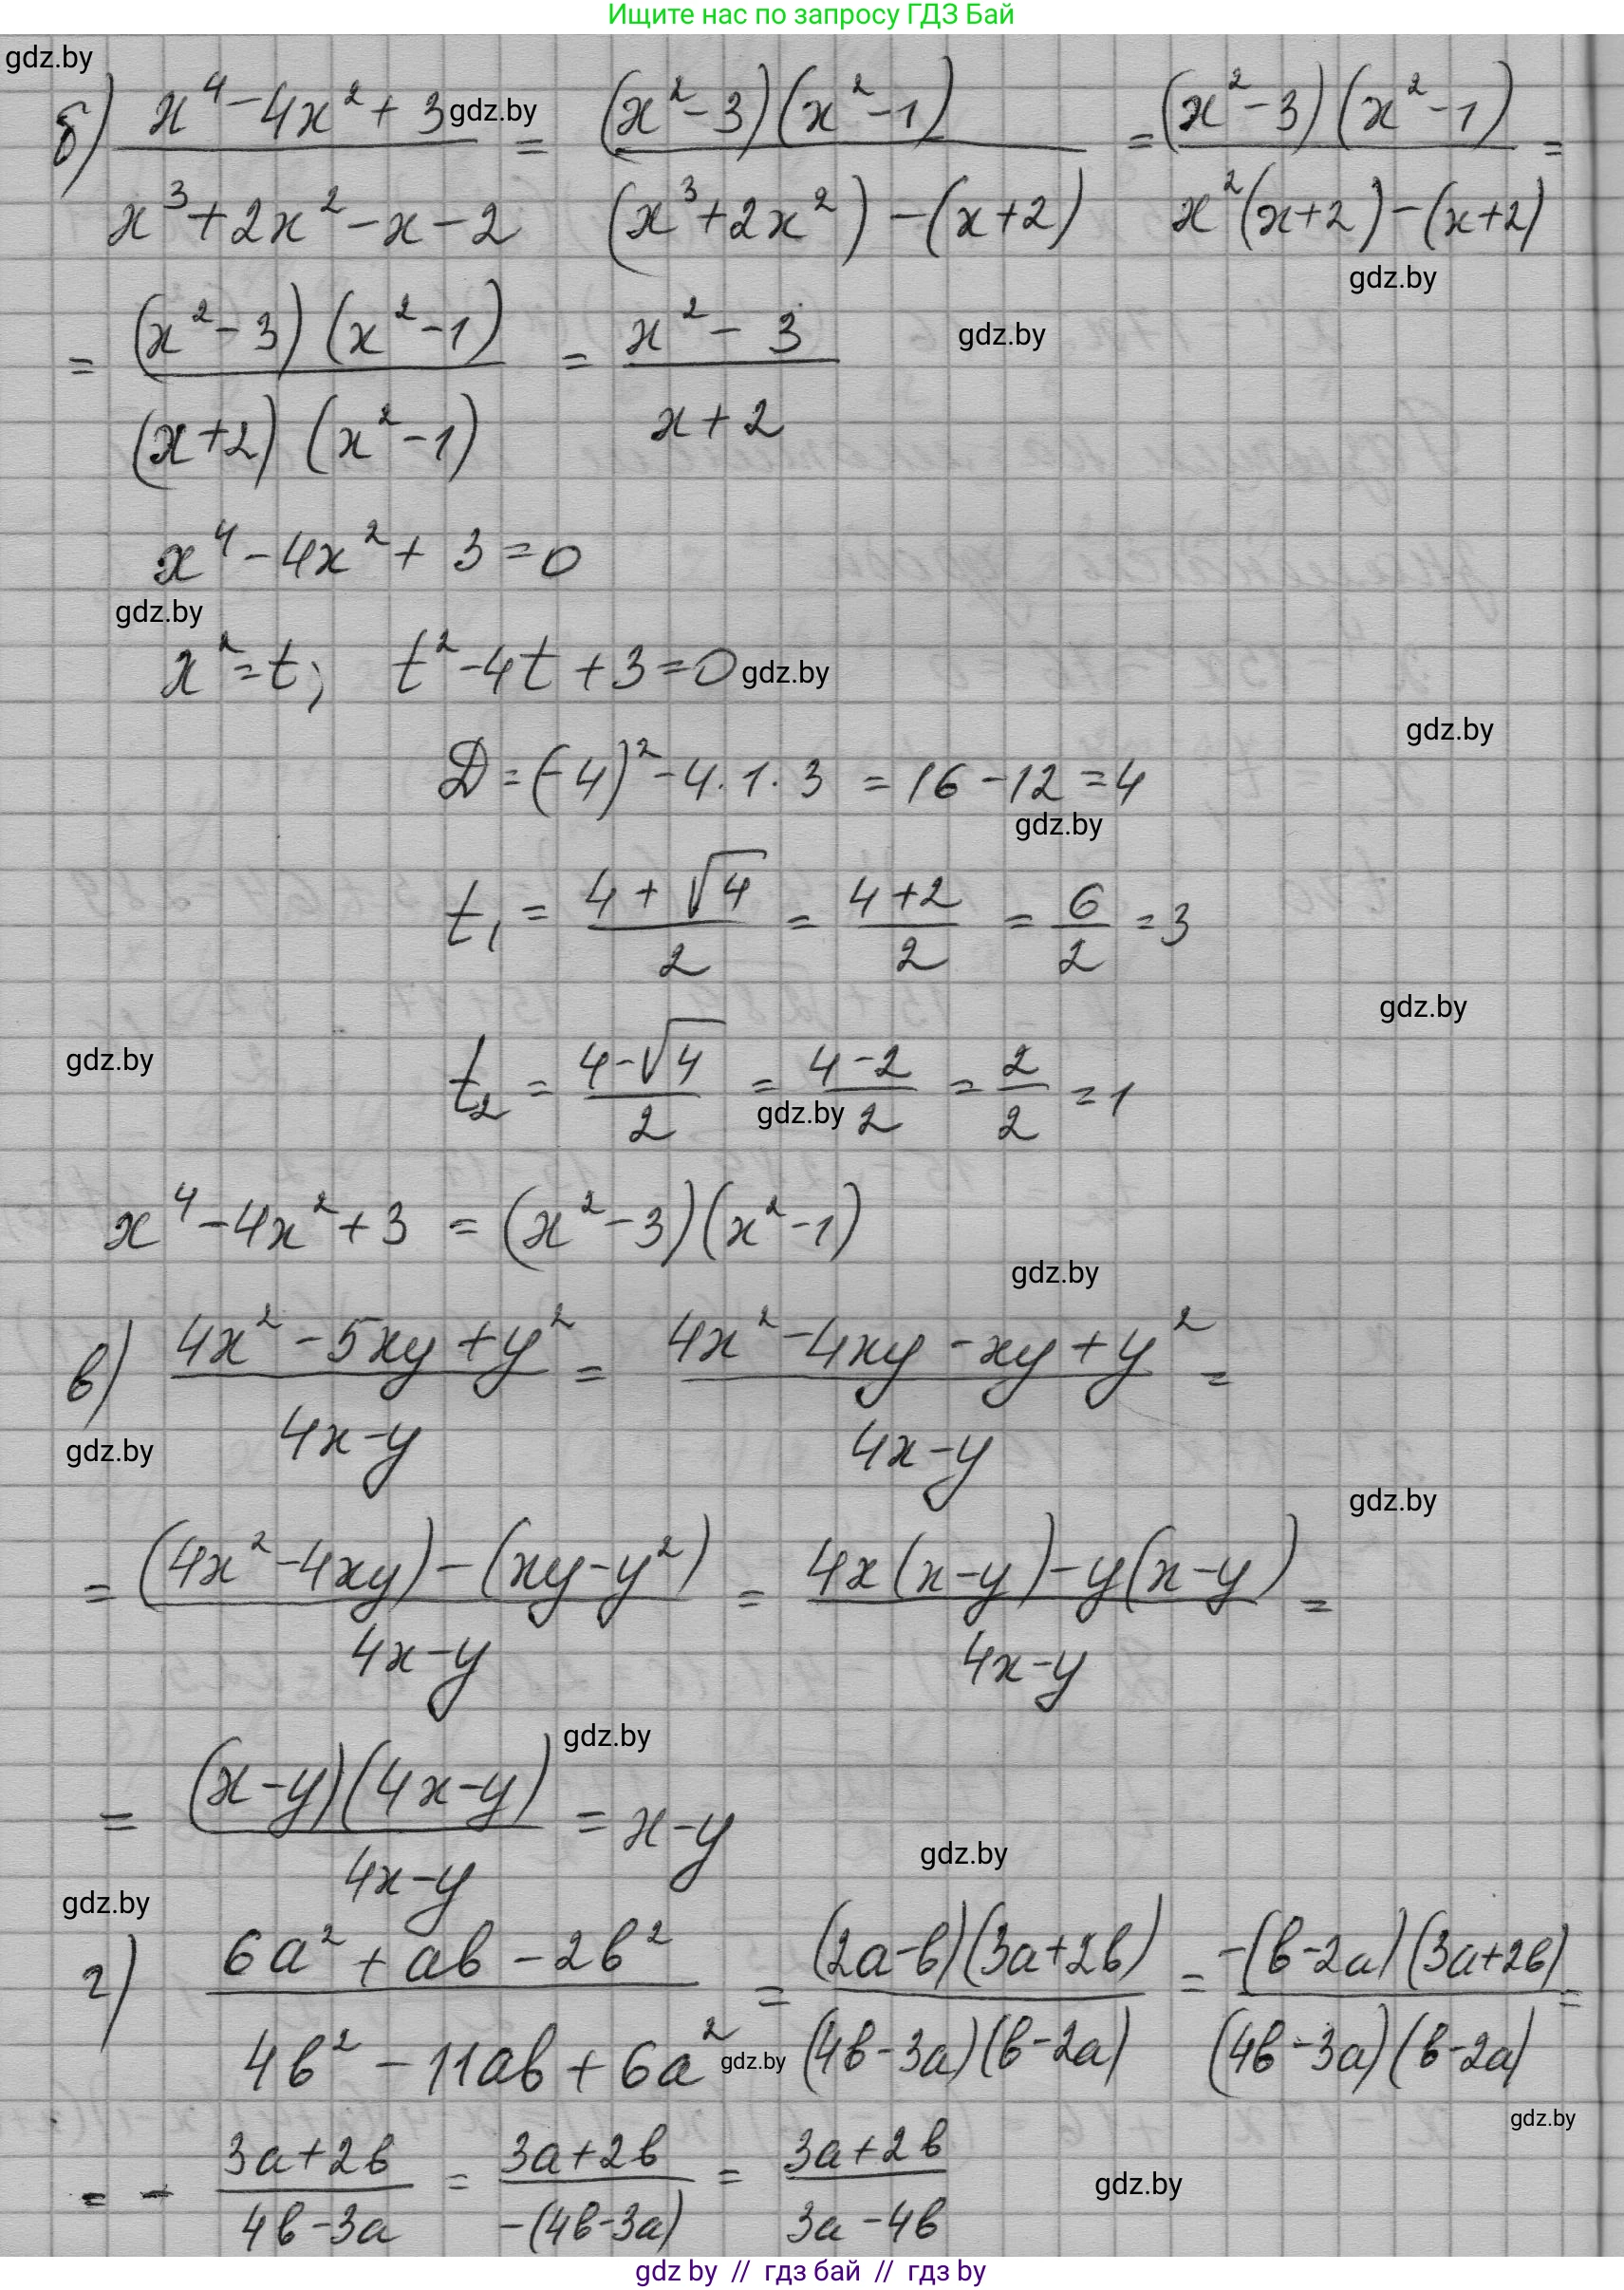 Ищите нас по запросу ГДЗ Бай
gdz.by
б) (x⁴ - 4x² + 3)/(x³ + 2x² - x - 2) = ((x² - 3)(x² - 1))/((x³ + 2x²) - (x + 2)) = ((x² - 3)(x² - 1))/(x²(x + 2) - (x + 2)) =
gdz.by
gdz.by
= ((x² - 3)(x² - 1))/((x + 2)(x² - 1)) = (x² - 3)/(x + 2)
gdz.by
x⁴ - 4x² + 3 = 0
gdz.by
x² = t; t² - 4t + 3 = 0
gdz.by
gdz.by
D = (-4)² - 4 · 1 · 3 = 16 - 12 = 4
gdz.by
t₁ = (4 + √4)/2 = (4 + 2)/2 = 6/2 = 3
gdz.by
gdz.by
t₂ = (4 - √4)/2 = (4 - 2)/2 = 2/2 = 1
gdz.by
x⁴ - 4x² + 3 = (x² - 3)(x² - 1)
gdz.by
в) (4x² - 5xy + y²)/(4x - y) = (4x² - 4xy - xy + y²)/(4x - y) =
gdz.by
gdz.by
= ((4x² - 4xy) - (xy - y²))/(4x - y) = (4x(x - y) - y(x - y))/(4x - y) =
gdz.by
= ((x - y)(4x - y))/(4x - y) = x - y
gdz.by
gdz.by
г) (6a² + ab - 2b²)/(4b² - 11ab + 6a²) = ((2a - b)(3a + 2b))/((4b - 3a)(b - 2a)) = (-(b - 2a)(3a + 2b))/((4b - 3a)(b - 2a)) =
gdz.by
gdz.by
= - (3a + 2b)/(4b - 3a) = (3a + 2b)/(-(4b - 3a)) = (3a + 2b)/(3a - 4b)
gdz.by
gdz by // гдз бай // гдз by